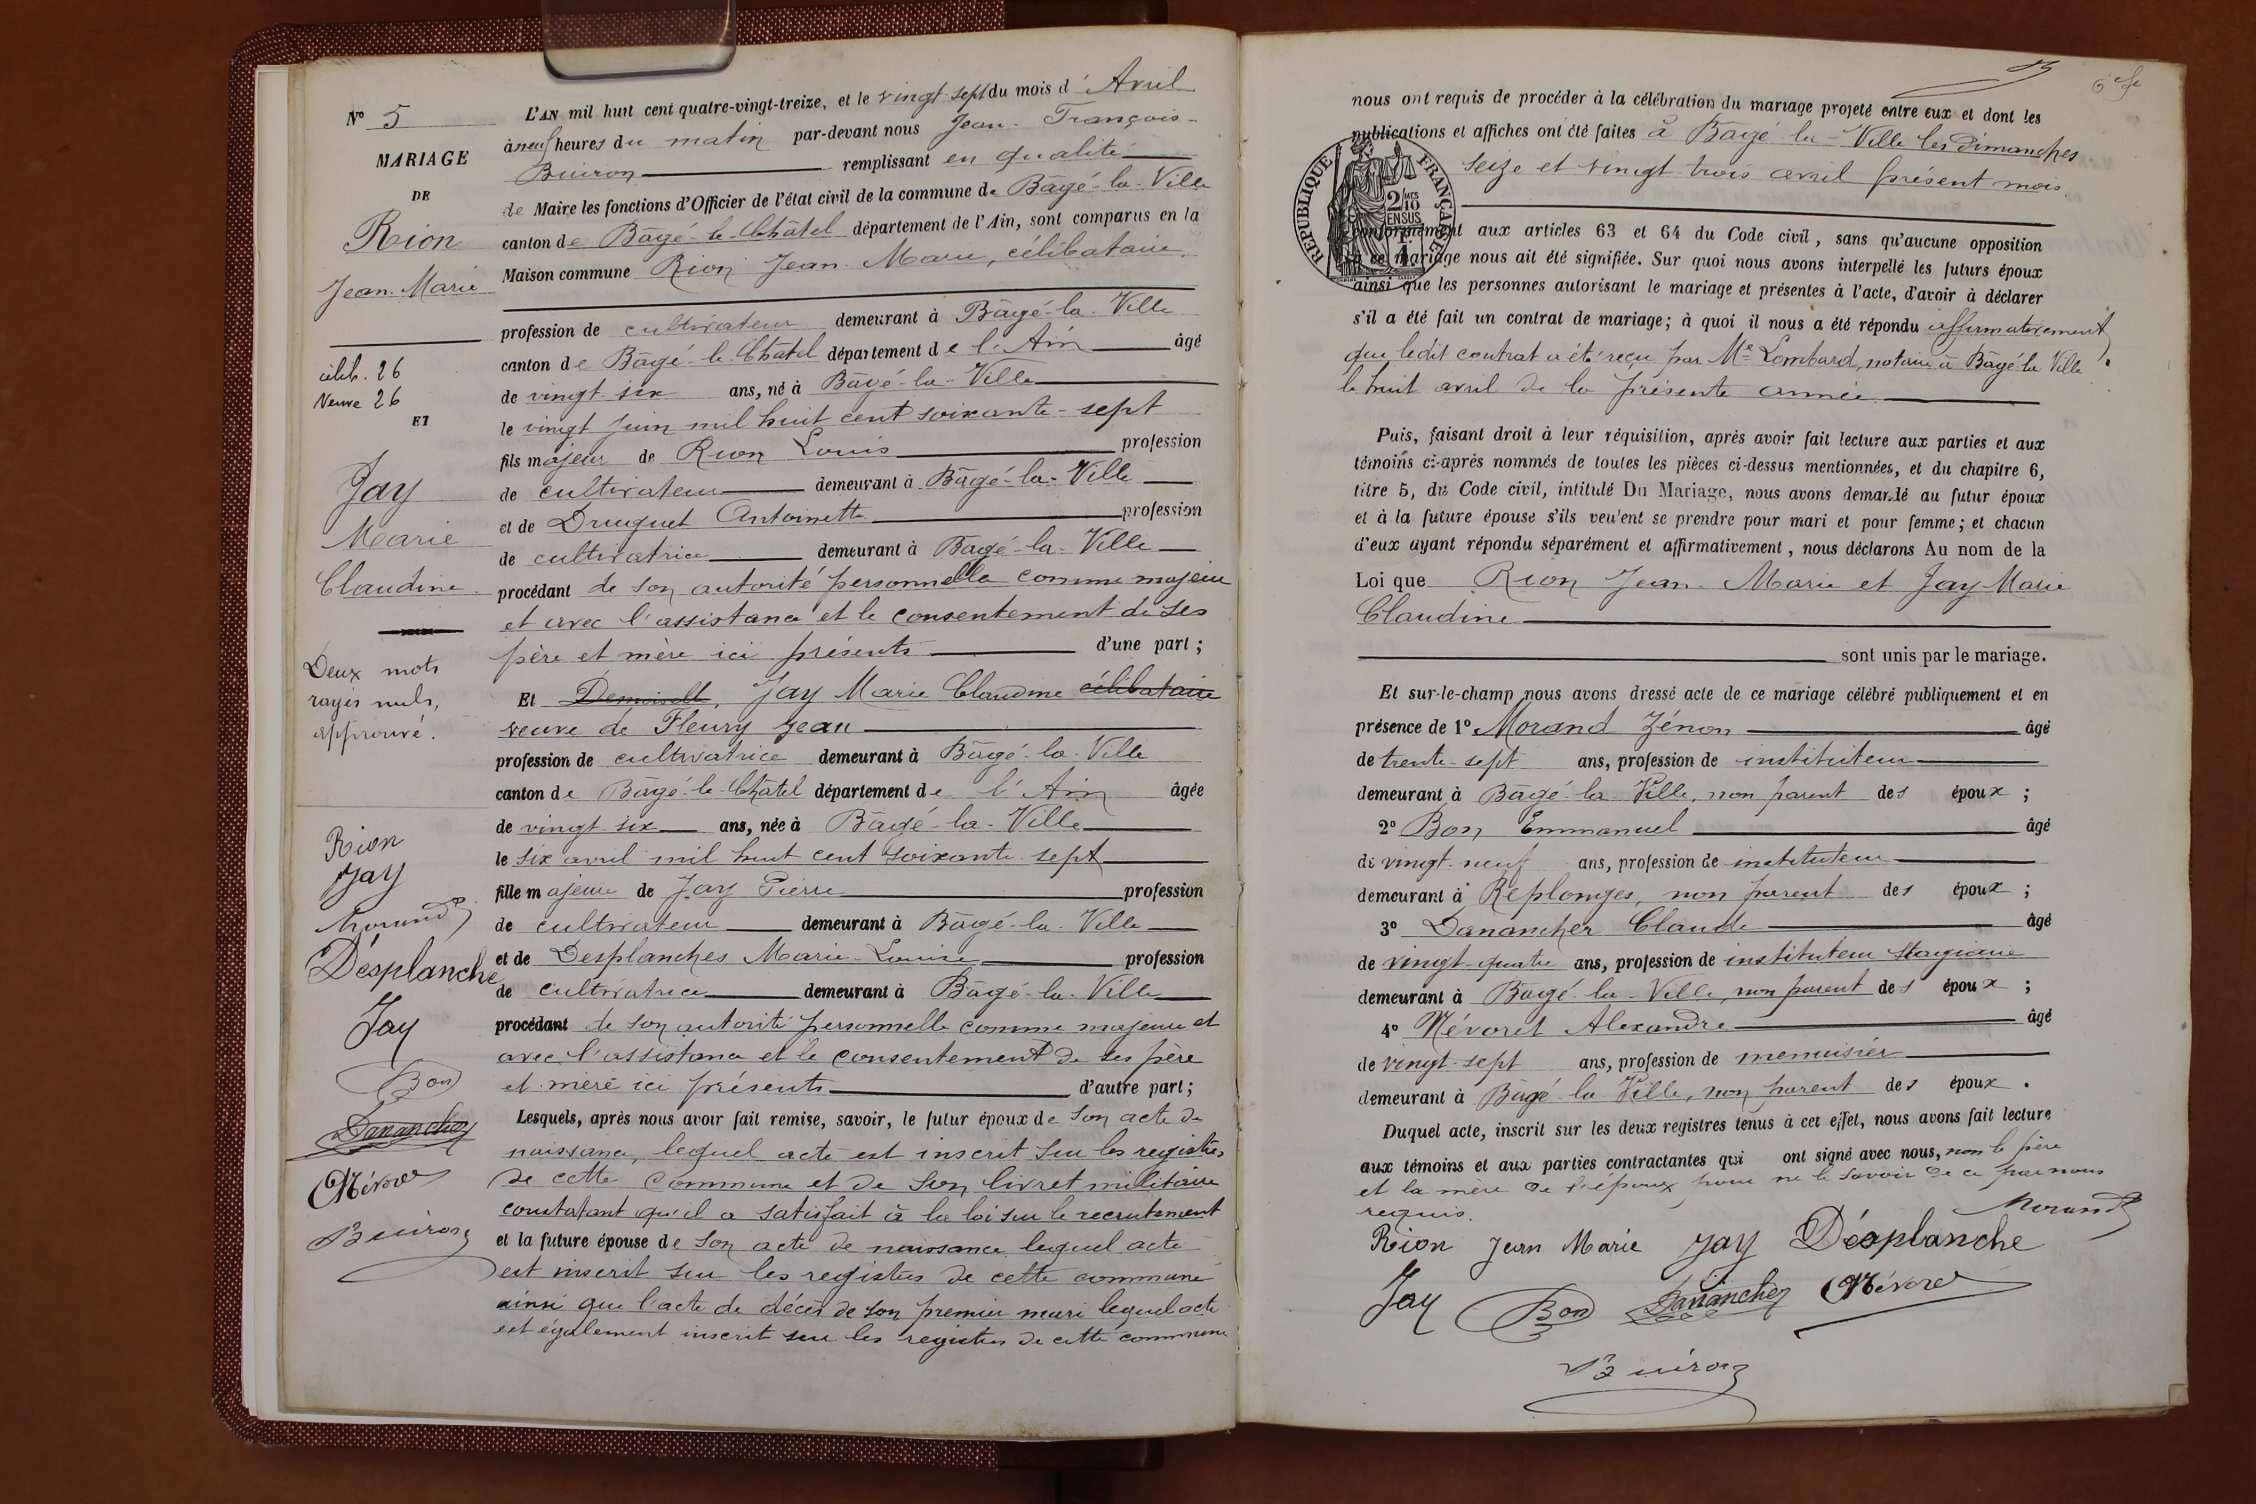 N° 5
MARIAGE
DE
Rion
Jean Marie
célib. 26
Veuve 26
ET
Jay
Marie
Claudine
Deux mots
rayés nuls,
approuvé.
Rion
Jay
Morand
Désplanche
Jay
Bon
Dananchez
Névoret
Buiron
L'AN mil huit cent quatre-vingt-treize, et le vingt sept du mois d'Avril
à neuf heures du matin par-devant nous Jean-François
Buiron remplissant en qualité
de Maire les fonctions d'Officier de l'état civil de la commune de Bâgé-la-Ville
canton de Bâgé-le-Châtel département de l'Ain, sont comparus en la
Maison commune Rion Jean-Marie, célibataire,
profession de cultivateur demeurant à Bâgé-la-Ville
canton de Bâgé-le-Châtel département de l'Ain âgé
de vingt-six ans, né à Bâgé-la-Ville
le vingt juin mil huit cent soixante-sept
fils majeur de Rion Louis profession
de cultivateur demeurant à Bâgé-la-Ville
et de Druguet Antoinette profession
de cultivatrice demeurant à Bâgé-la-Ville
procédant de son autorité personnelle comme majeur
et avec l'assistance et le consentement de ses
père et mère ici présents d'une part ;
Et Demoiselle, Jay Marie Claudine célibataire
veuve de Fleury Jean
profession de cultivatrice demeurant à Bâgé-la-Ville
canton de Bâgé-le-Châtel département de l'Ain âgée
de vingt-six ans, née à Bâgé-la-Ville
le six avril mil huit cent soixante-sept
fille majeure de Jay Pierre profession
de cultivateur demeurant à Bâgé-la-Ville
et de Desplanches Marie-Louise profession
de cultivatrice demeurant à Bâgé-la-Ville
procédant de son autorité personnelle comme majeure et
avec l'assistance et le consentement de ses père
et mère ici présents d'autre part ;
Lesquels, après nous avoir fait remise, savoir, le futur époux de son acte de
naissance, lequel acte est inscrit sur les registres
de cette commune et de son livret militaire
constatant qu'il a satisfait à la loi sur le recrutement
et la future épouse de son acte de naissance lequel acte
est inscrit sur les registres de cette commune
ainsi que l'acte de décès de son premier mari lequel acte
est également inscrit sur les registres de cette commune
nous ont requis de procéder à la célébration du mariage projeté entre eux et dont les
publications et affiches ont été faites à Bâgé-la-Ville les dimanches
seize et vingt-trois avril présent mois
RÉPUBLIQUE FRANÇAISE
2/10 EN SUS
conformément aux articles 63 et 64 du Code civil, sans qu'aucune opposition
à ce mariage nous ait été signifiée. Sur quoi nous avons interpellé les futurs époux
ainsi que les personnes autorisant le mariage et présentes à l'acte, d'avoir à déclarer
s'il a été fait un contrat de mariage ; à quoi il nous a été répondu affirmativement
que ledit contrat a été reçu par Me Lombard, notaire à Bâgé-la-Ville
le huit avril de la présente année
Puis, faisant droit à leur réquisition, après avoir fait lecture aux parties et aux
témoins ci-après nommés de toutes les pièces ci-dessus mentionnées, et du chapitre 6,
titre 5, du Code civil, intitulé Du Mariage, nous avons demandé au futur époux
et à la future épouse s'ils veulent se prendre pour mari et pour femme ; et chacun
d'eux ayant répondu séparément et affirmativement, nous déclarons Au nom de la
Loi que Rion Jean-Marie et Jay Marie
Claudine
sont unis par le mariage.
Et sur-le-champ nous avons dressé acte de ce mariage célébré publiquement et en
présence de 1° Morand Zénon âgé
de trente-sept ans, profession de instituteur
demeurant à Bâgé-la-Ville, non parent des époux ;
2° Bon Emmanuel âgé
de vingt-neuf ans, profession de instituteur
demeurant à Replonges, non parent des époux ;
3° Dananchez Claude âgé
de vingt-quatre ans, profession de instituteur stagiaire
demeurant à Bâgé-la-Ville, non parent des époux ;
4° Névoret Alexandre âgé
de vingt-sept ans, profession de menuisier
demeurant à Bâgé-la-Ville, non parent des époux.
Duquel acte, inscrit sur les deux registres tenus à cet effet, nous avons fait lecture
aux témoins et aux parties contractantes qui ont signé avec nous, non le père
et la mère de l'époux pour ne le savoir de ce par nous
requis.
Morand
Rion Jean Marie Jay Désplanche
Jay Bon Dananchez Névoret
Buiron